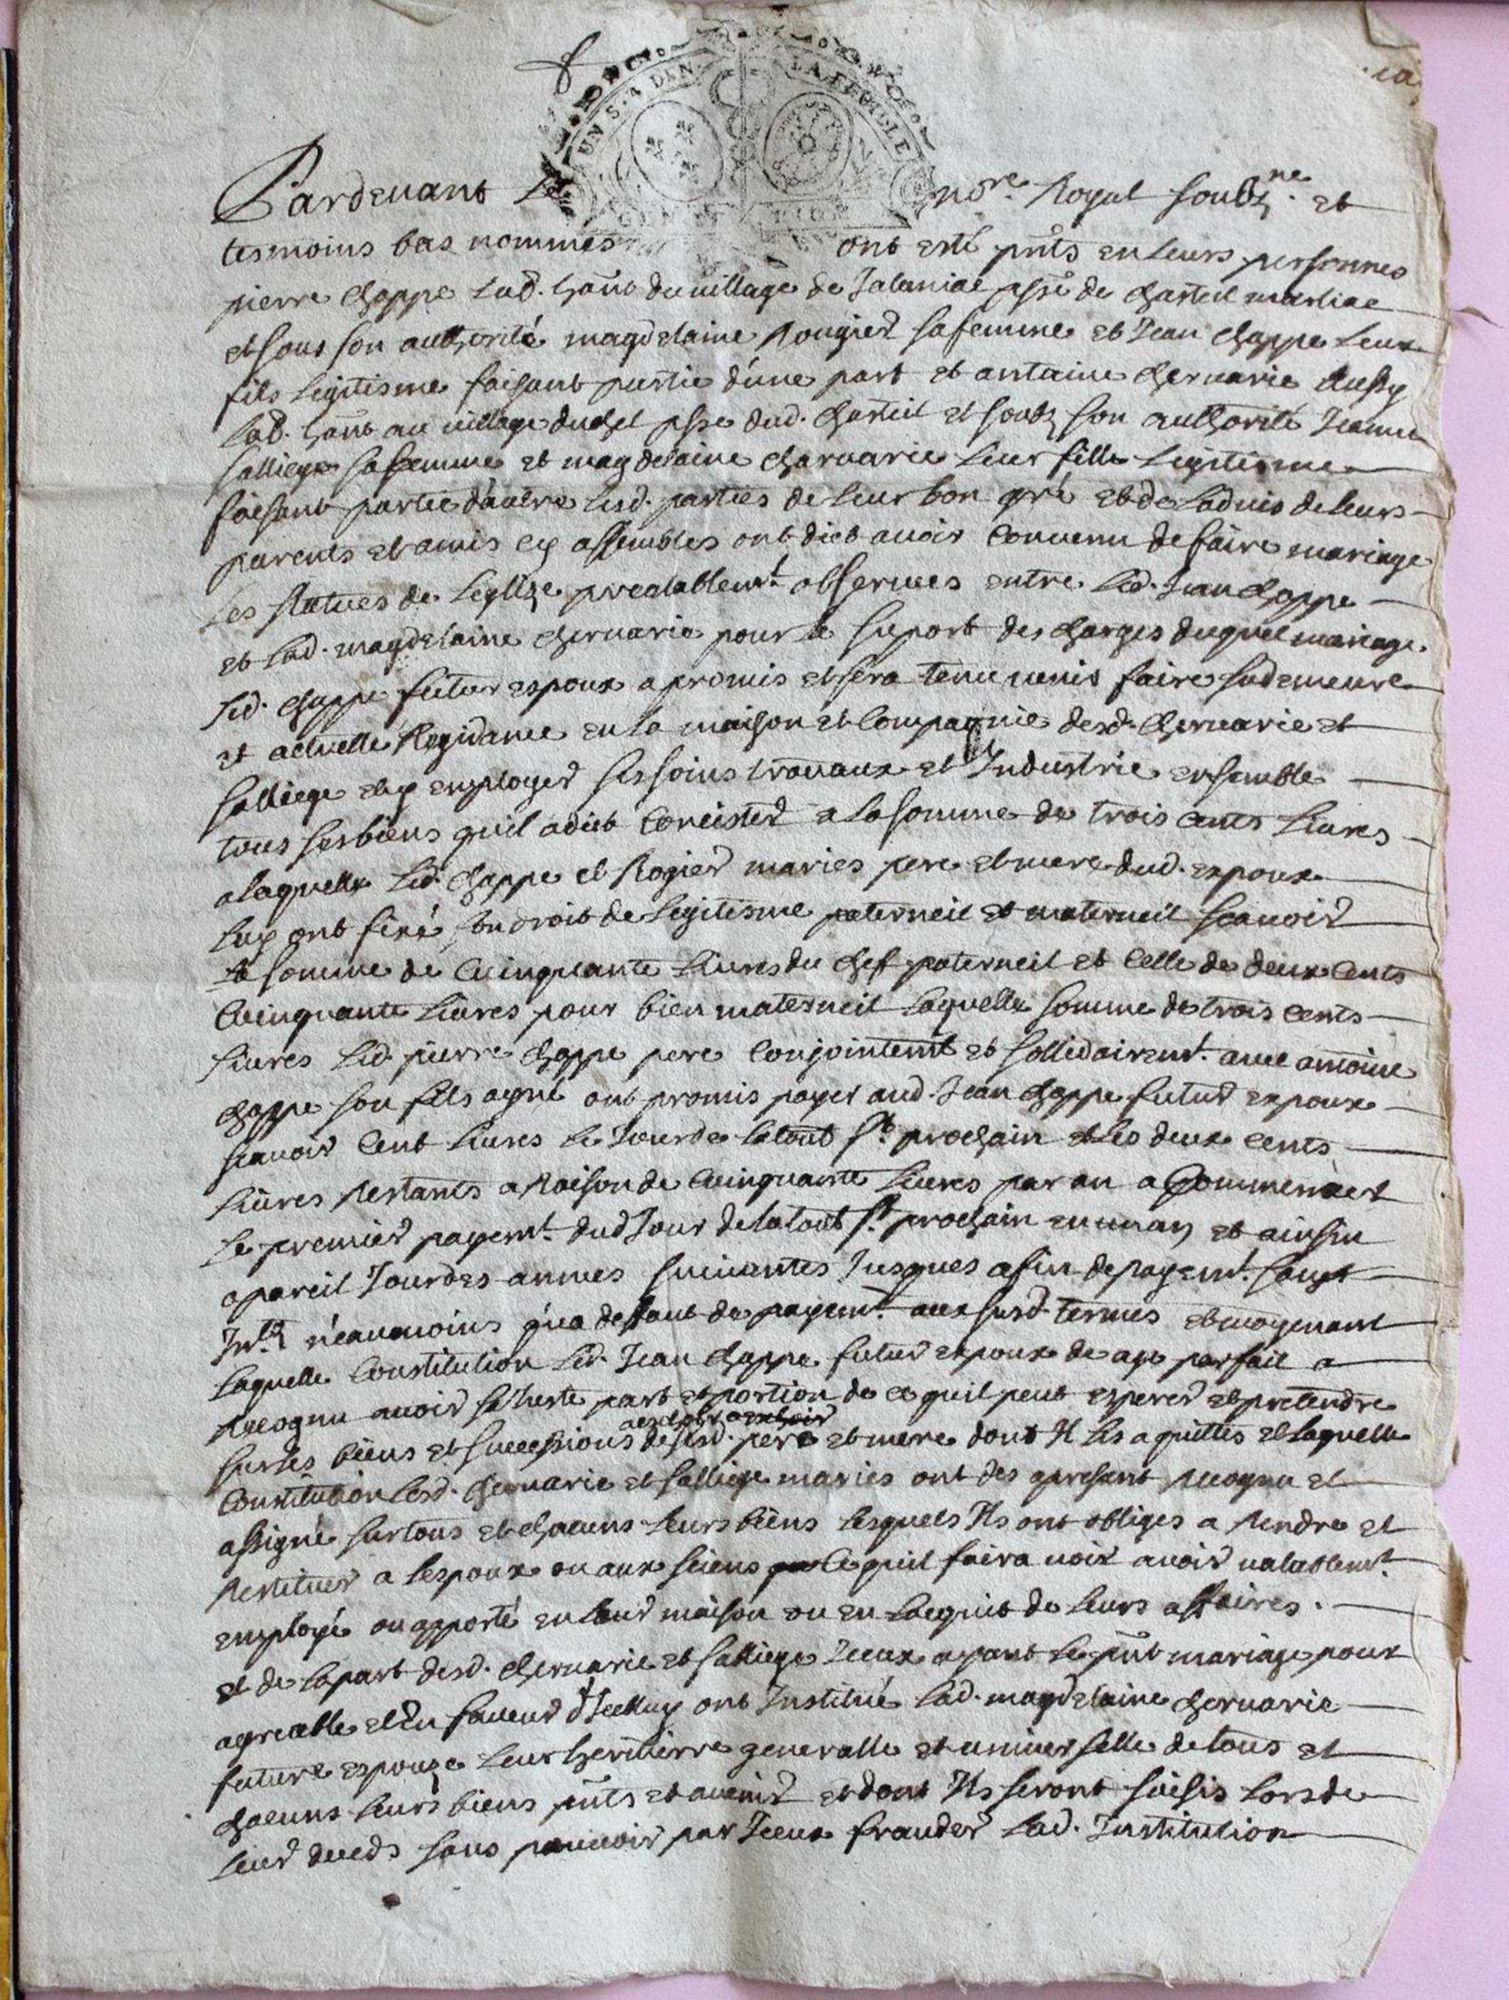 UN S. 4 DEN. LA FEUILLE
Pardevant Le no.re Royal soub.né et
tesmoins bas nommés ont esté pñts en leurs personnes
pierre chappe Lab. hañt du village de Talaniac psse de chasteil marliac
et sous son authorité magdelaine Rougier sa femme et Jean chappe Leur
fils Legitisme faisant partie d'une part et antoine chervarie Aussy
Lab. hañt au village duchel psse dud. chasteil et soubz son authorité Jeanne
salliege sa femme et magdelaine charvarie Leur fille Legitisme
faisant partie d'autre Lesd. parties de Leur bon gré et de Ladvis de Leurs
parents et amis cy assembles ont dict avoir Convenu de faire mariage
Les statues de Leglize prealablem.t observees entre Led. Jean chappe
et Lad. magdelaine chervarie pour le suport des charges duquel mariage
Led. chappe futur espoux a promis et sera tenu venir faire sa demeure
et actuelle Rezidance en la maison et Compagnie desd. chervarie et
salliege et y employer ses soins travaux et Industrie ensemble
tous ses biens quil a dict Concister a la somme de trois cents Livres
a laquelle Led. chappe et Rogier maries pere et mere dud. expoux
Luy ont fixé son droit de Legitisme paterneil et materneil scavoir
la somme de Cinquante Livres du chef paterneil et Celle de deux Cents
Cinquante Livres pour bien materneil Laquelle somme de trois Cents
Livres Led. pierre chappe pere Conjointemt et sollidairemt. avec antoine
chappe son fils ayné ont promis payer aud. Jean chappe futur expoux
scavoir Cent Livres Le Jour de la tout st. prochain et Les deux cents
Livres Restants a Raison de Cinquante Livres par an a Commencer
Le premier payemt. dud Jour de la tout st. prochain en un an et ainsin
a pareil Jour des annees suivantes Jusques a fin de payemt. sans
néanmoins qu'a deffaut de payemt. aux susd. termes et moyenant
Laquelle Constitution Led. Jean chappe futur expoux de age parfait a
Recognu avoir sa Juste part et portion de ce quil peut esperer et pretendre
sur Les biens et successions desd. pere et mere dont Il Les a quittes et Laquelle
Constitution Lesd. chervarie et salliege maries ont des apresant Recognu et
assigné sur tous et chacuns Leurs biens Lesquels Ils ont obliges a Rendre et
Restituer a Lespoux ou aux siens Ce quil faira voir avoir valablemt.
employé ou apporté en Leur maison ou en Lacquit de Leurs affaires.
et de La part desd. chervarie et salliege Iceux ayant Le pñt mariage pour
agreable et En faveur d'Icelluy ont Institué Lad. magdelaine chervarie
future espouze Leur heritierre generalle et universelle de tous et
chacuns Leurs biens pñts et avenir et dont Ils seront saisis Lors de
Leur deceds sans pouvoir par Iceux frauder Lad. Institution